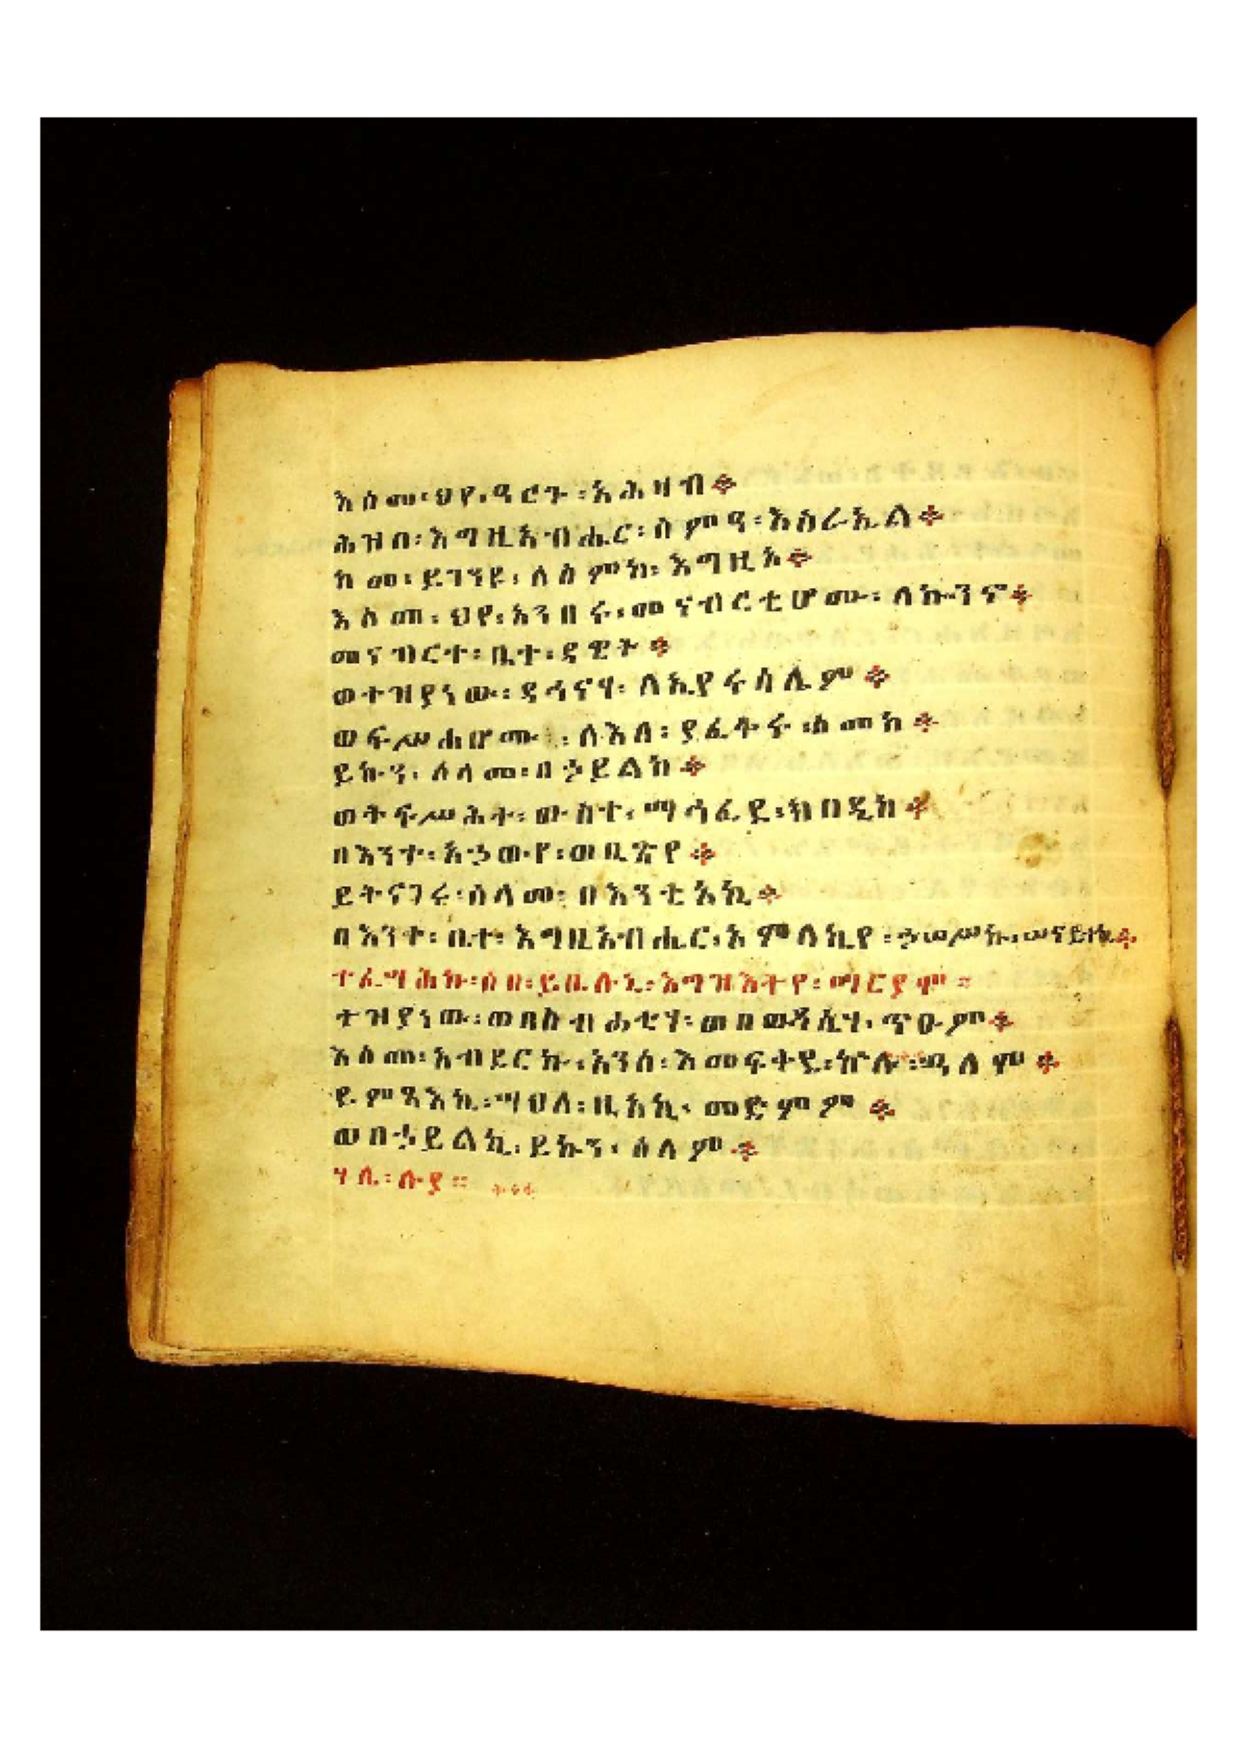 እስመ፡ህየ፡ዓርጉ፡አሕዛብ፨
ሕዝበ፡እግዚአብሔር፡ስምዓ፡እስራኤል፨
ከመ፡ይገንዩ፡ለስምከ፡እግዚአ፨
እስመ፡ህየ፡አንበሩ፡መናብርቲሆሙ፡ለኩንኖ፨
መናብርተ፡ቤተ፡ዳዊት፨
ወተዝያነው፡ዳኅናሃ፡ለኢየሩሳሌም፨
ወፍሥሐሆሙ፡ለእለ፡ያፈቅሩ፡ስመከ፨
ይኩን፡ሰላመ፡በኃይልከ፨
ወትፍሥሕት፡ውስተ፡ማኅፈደ፡ክበዲከ፨
በእንተ፡አኃውየ፡ወቢጽየ፨
ይትናገሩ፡ሰላመ፡በእንቲአኪ፨
በእንተ፡ቤተ፡እግዚአብሔር፡አምላኪየ፡ኃሠሥኩ፡ሠናይተኪ፨
ተፈሣሕኩ፡ሶበ፡ይቤሉኒ፡እግዝእትየ፡ማርያም፡፡
ተዝያነው፡ወበስብሐቲሃ፡ወበወዳሴሃ፡ጥዑም፨
እስመ፡አብደርኩ፡አንሰ፡እመፍትዴ፡ኵሉ፡ዓለም፨
ዩምጻእኪ፡ማህለ፡ዚአኪ፡መድምም፨
ወበኃይልኪ፡ይኩን፡ሰላም፨
ሃሌ፡ሉያ፡፡